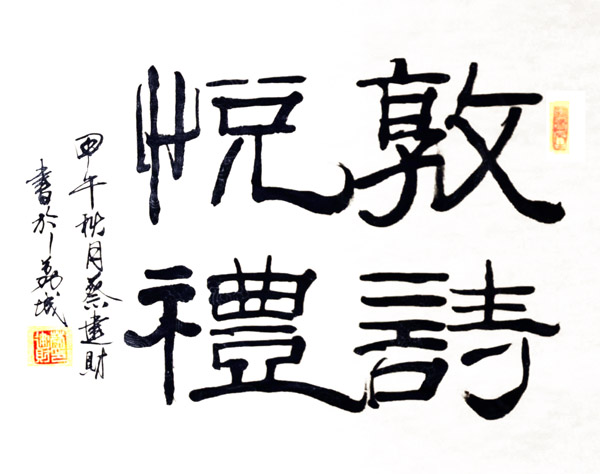 敦詩
悅禮
甲午秋月蔡建財
書於荔城